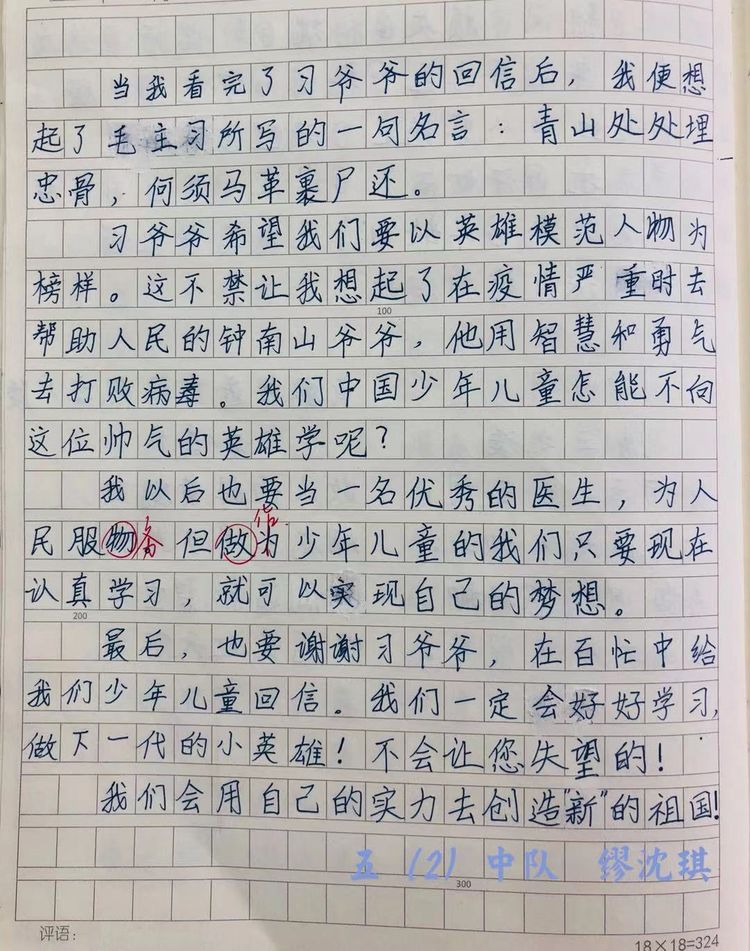 当我看完了习爷爷的回信后，我便想
起了毛主习所写的一句名言：青山处处埋
忠骨，何须马革裹尸还。
习爷爷希望我们要以英雄模范人物为
榜样。这不禁让我想起了在疫情严重时去
100
帮助人民的钟南山爷爷，他用智慧和勇气
去打败病毒。我们中国少年儿童怎能不向
这位帅气的英雄学呢？
我以后也要当一名优秀的医生，为人
作
民服物务但做为少年儿童的我们只要现在
认真学习，就可以实现自己的梦想。
200
最后，也要谢谢习爷爷，在百忙中给
我们少年儿童回信。我们一定会好好学习，
做下一代的小英雄！不会让您失望的！
我们会用自己的实力去创造"新"的祖国！
五（2）中队 缪沈琪
300
评语：
18×18=324